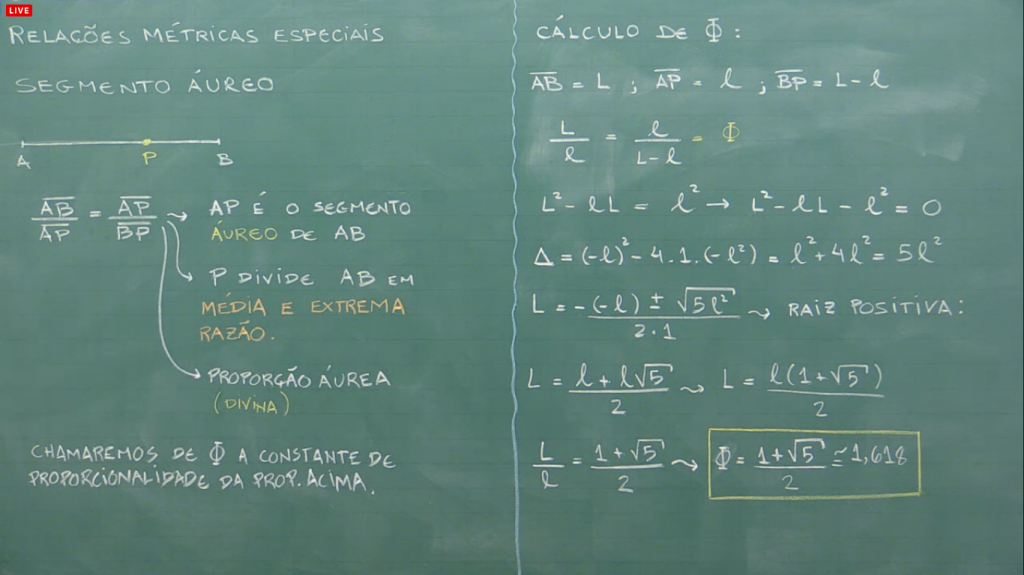 LIVE
RELAÇÕES MÉTRICAS ESPECIAIS
SEGMENTO ÁUREO
A P B
AB/AP = AP/BP → AP É O SEGMENTO
ÁUREO DE AB
P DIVIDE AB EM
MÉDIA E EXTREMA
RAZÃO.
PROPORÇÃO ÁUREA
(DIVINA)
CHAMAREMOS DE Φ A CONSTANTE DE
PROPORCIONALIDADE DA PROP. ACIMA.
CÁLCULO DE Φ:
A̅B̅ = L ; A̅P̅ = ℓ ; B̅P̅ = L - ℓ
L/ℓ = ℓ/(L-ℓ) = Φ
L² - ℓL = ℓ² → L² - ℓL - ℓ² = 0
Δ = (-ℓ)² - 4.1.(-ℓ²) = ℓ² + 4ℓ² = 5ℓ²
L = (-(-ℓ) ± √5ℓ²)/(2·1) → RAIZ POSITIVA:
L = (ℓ + ℓ√5)/2 → L = ℓ(1+√5)/2
L/ℓ = (1+√5)/2 → Φ = (1+√5)/2 ≅ 1,618